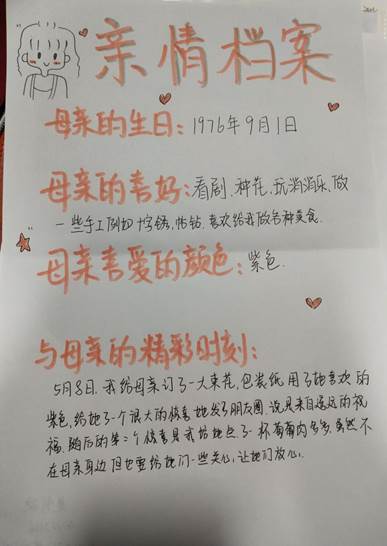 亲情档案
母亲的生日：1976年9月1日
母亲的喜好：看剧、种花、玩消消乐、做
一些手工例如十字绣、帖钻、喜欢给我做各种美食.
母亲喜爱的颜色：紫色.
与母亲的精彩时刻：
5月8日，我给母亲订了一大束花，包装纸用了她喜欢的
紫色，给她了一个很大的惊喜她发了朋友圈，说是来自遥远的祝
福，随后的第二个惊喜是我给她点了一杯葡萄肉多多，虽然不
在母亲身边但也要给她们一些关心，让她们放心.